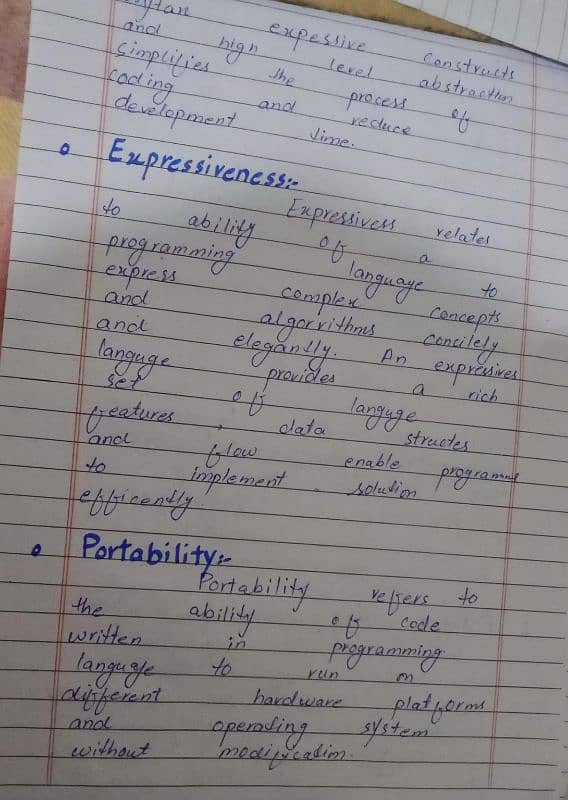 expessive constructs
and high level abstraction
simplifies the process of
coding and reduce
development time.
Expressiveness:-
Expressivess relates
to ability of a
programming language to
express complex concepts
and algorrithms concilely
and elegantly. An expressives
languge provides a rich
set of languge
features, data structes
and flow enable
to implement solution
efficently.
Portability:-
Portability reffers to
the ability of code
written in programming
language to run on
different hardware platforms
and operating system
without modification.